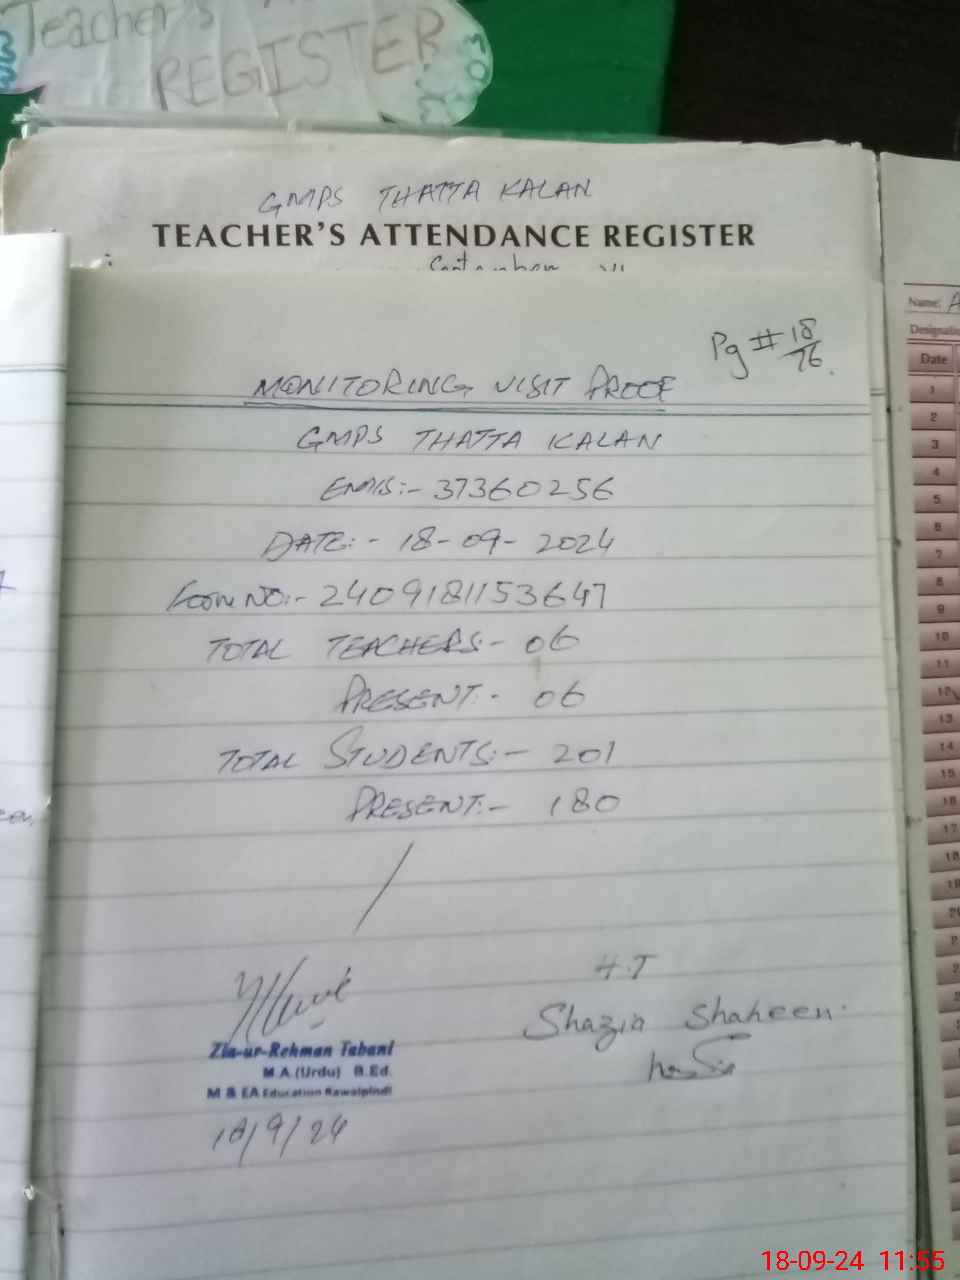 Teacher's
REGISTER
GMPS THATTA KALAN
TEACHER'S ATTENDANCE REGISTER
Pg # 18/76.
MONITORING VISIT PROOF
GMPS THATTA KALAN
EMIS:- 37360256
DATE:- 18-09-2024
Form NO:- 2409181153647
TOTAL TEACHERS:- 06
PRESENT:- 06
TOTAL STUDENTS:- 201
PRESENT:- 180
Zia-ur-Rehman Tabani
M.A.(Urdu) B.Ed.
M & EA Education Rawalpindi
18/9/24
H.T
Shazia Shaheen.
Name: A
Designatio
Date
1
2
3
4
5
6
7
8
9
10
11
12
13
14
15
16
17
18
19
20
18-09-24 11:55